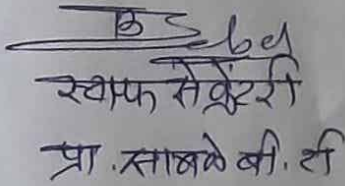 स्टाफ सेक्रेटरी
प्रा. साबळे बी. टी